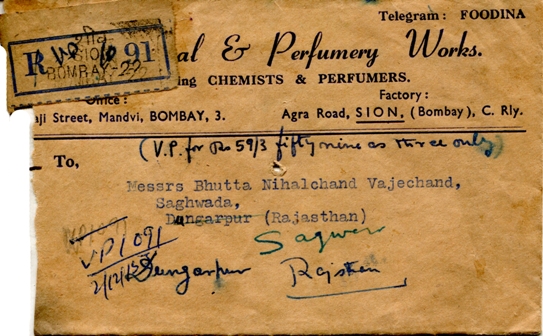 Telegram : FOODINA
R VP 10 91
SION
BOMBAY-22
al & Perfumery Works.
ing CHEMISTS & PERFUMERS.
Office :
Factory :
aji Street, Mandvi, BOMBAY, 3.
Agra Road, SION, (Bombay), C. Rly.
(V.P. for Rs 59/3 fifty nine as three only)
To,
Messrs Bhutta Nihalchand Vajechand,
Saghwada,
Dungarpur (Rajasthan)
Sagwara
VP1091
VP1091
2/12/58
Dungarpur
Rajsthan